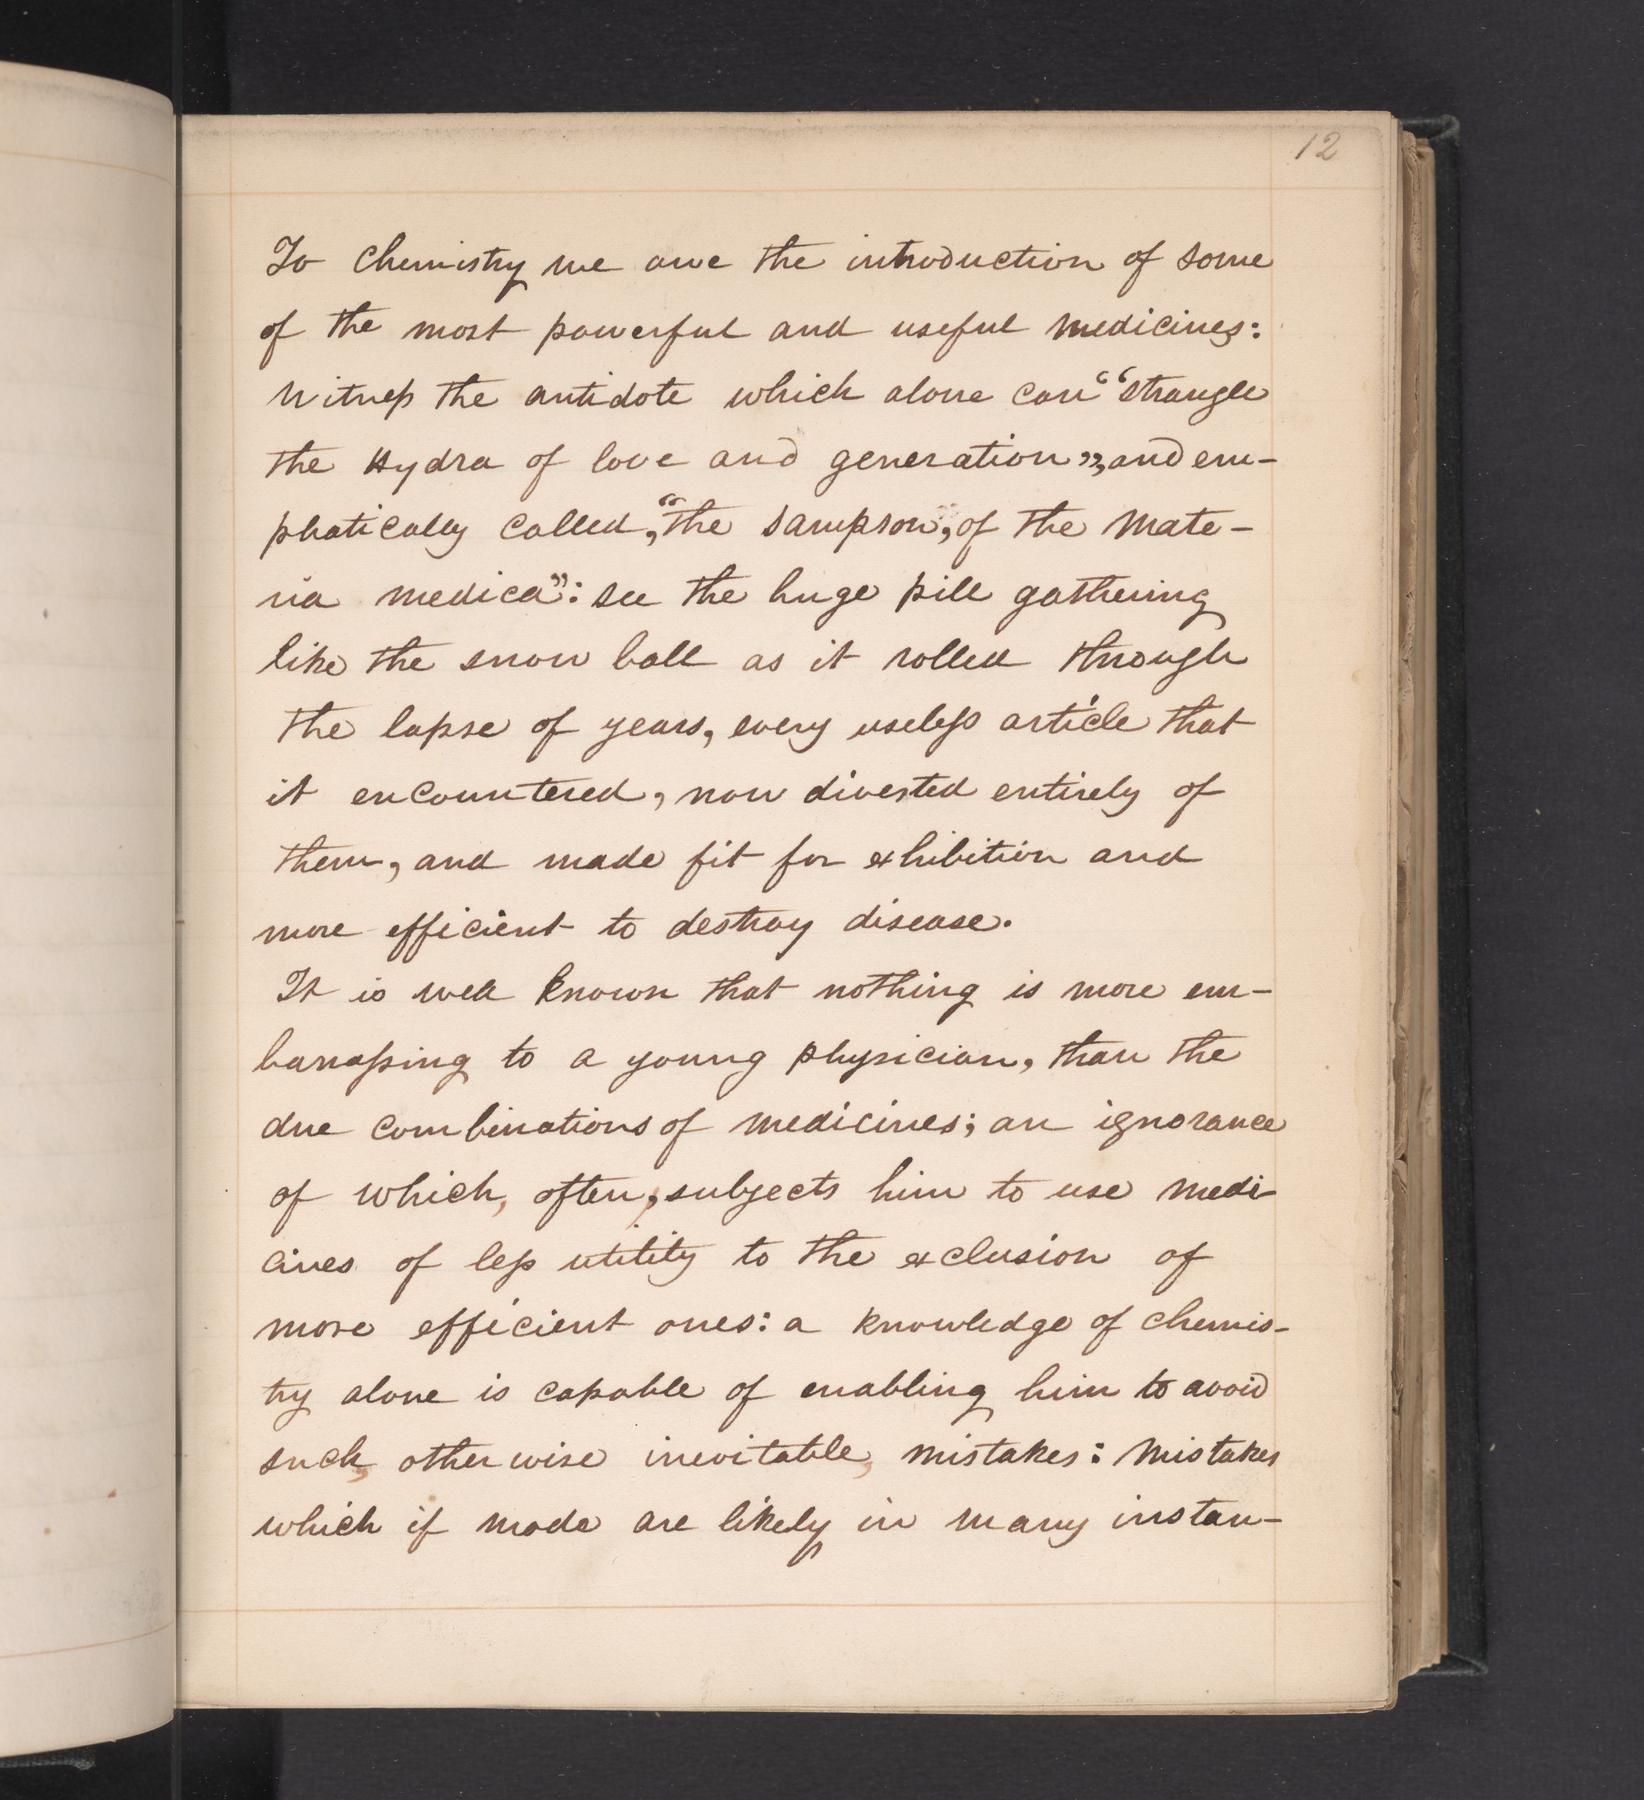 12
To Chemistry we owe the introduction of some
of the most powerful and useful medicines:
Witness the antidote which alone can “strangle
the Hydra of love and generation”, and em-
phatically called, “the Sampson, of the Mate-
ria medica”: see the huge pill gathering
like the snow ball as it rolled through
the lapse of years, every useless article that
it encountered, now divested entirely of
them, and made fit for exhibition and
more efficient to destroy disease.
It is well known that nothing is more em-
barrassing to a young physician, than the
due combinations of medicines; an ignorance
of which, often, subjects him to use medi-
cines of less utility to the exclusion of
more efficient ones: a knowledge of chemis-
try alone is capable of enabling him to avoid
such, otherwise inevitable, mistakes: Mistakes
which if made are likely in many instan-